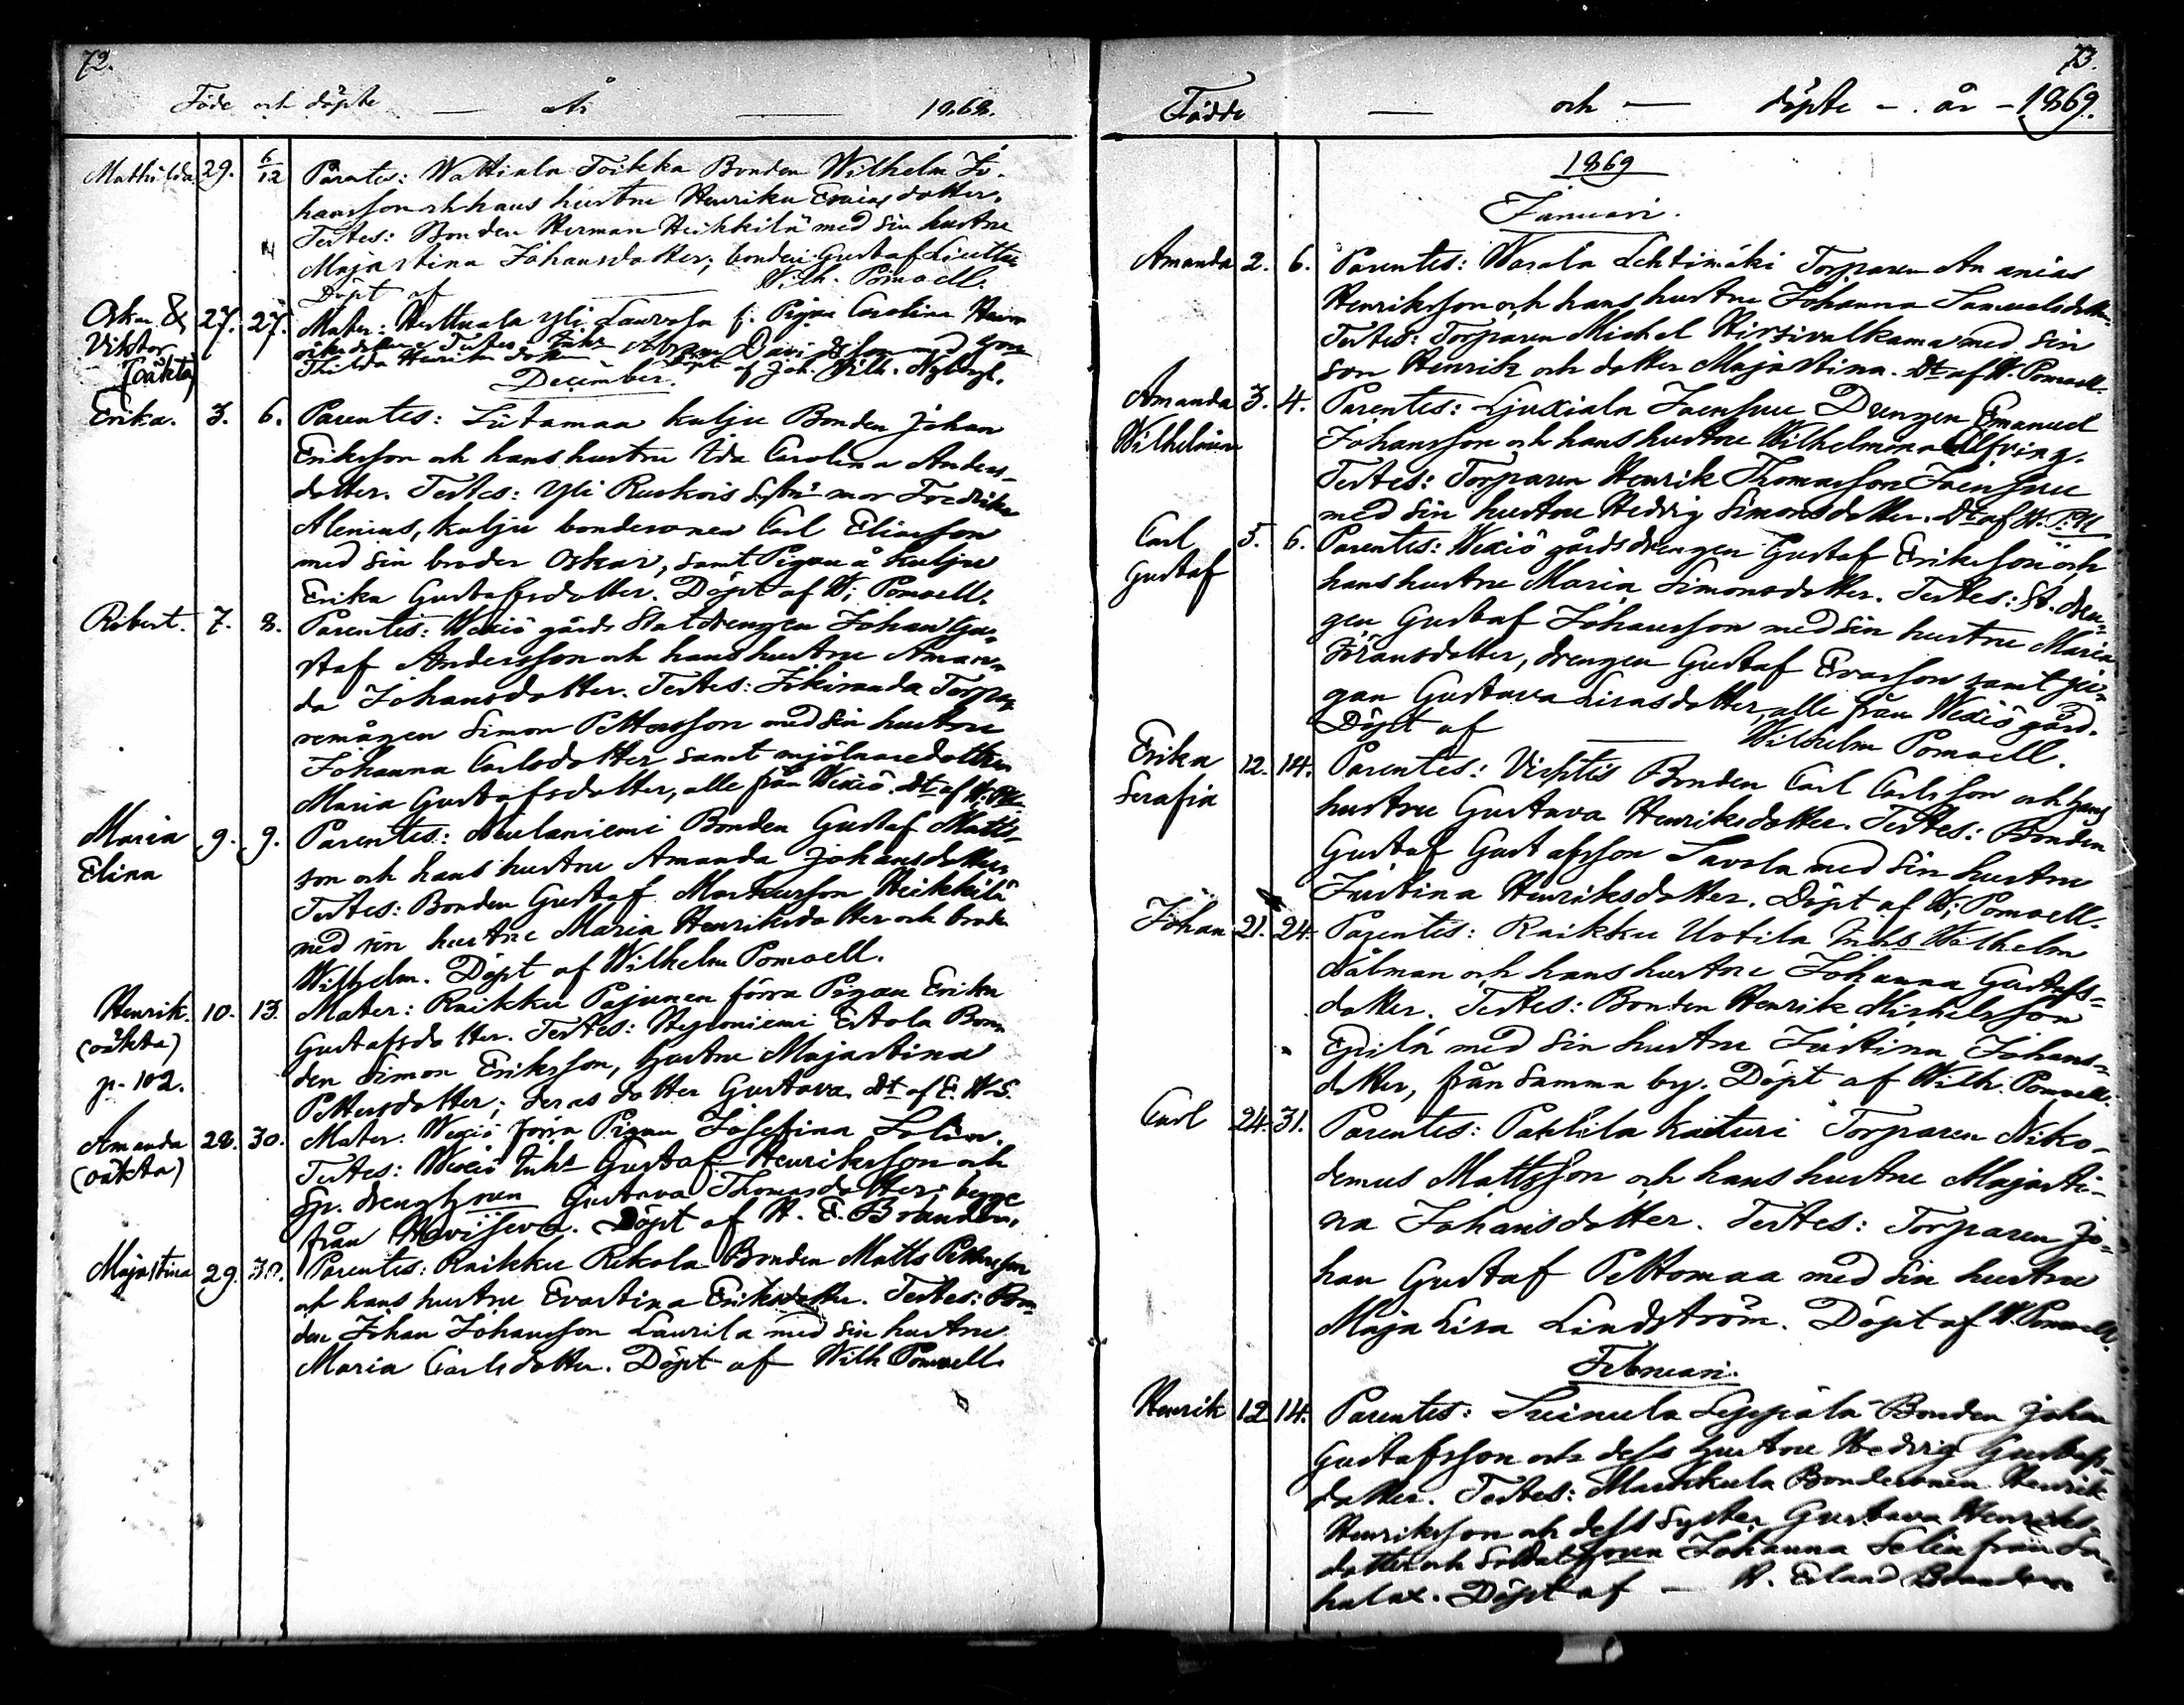 72.
Föde och döpte — År — 1868.
Mathilda 29. 6/12 Parentes: Wattiala Toikka Bonden Wilhelm Jo-
hansson och hans hustru Henrika Eniasdotter.
Testes: Bonden Herman Heikkilä med sin hustru
Majastina Johansdotter; bonden Gustaf
Döpt af — Wilh. Pomoell.
Oskar & Viktor (oäkta) 27. 27. Mater: Herttuala Yli Laurola f. Pigan Carolina Hen-
riksdotter. Testes: Inhs Davidsson med
Thilda Henriksdotter. Döpt af Joh. Wilh. Nybergh.
December.
Erika. 3. 6. Parentes: Liitamaa Kulju Bonden Johan
Eriksson och hans hustru Ida Carolina Anders-
dotter. Testes: Yli Ruokois mor Fredrika
Alenius, Kulju bondesonen Carl Eliasson
med sin broder Oskar, samt Pigan å Kulju
Erika Gustafsdotter. Döpt af W: Pomoell.
Robert. 7. 8. Parentes: Wexiö gårds Statdrengen Johan Gu-
staf Andersson och hans hustru Aman-
da Johansdotter. Testes: Jokiranda Torpa-
remågen Simon Pettersson med sin hustru
Johanna Carlsdotter samt mjölnaredottren
Maria Gustafsdotter, alle från Wexiö. Dt af W. Pll
Maria Elina 9. 9. Parentes: Neulaniemi Bonden Gustaf Matts-
son och hans hustru Amanda Johansdotter.
Testes: Bonden Gustaf Markusson Heikkilä
med sin hustru Maria Henriksdotter och broder
Wilhelm. Döpt af Wilhelm Pomoell.
Henrik. (oäkta) p. 102. 10. 13. Mater: Raikku Pajunen förra Pigan Erika
Gustafsdotter. Testes: Hyponiemi Ertola Bon-
den Simon Eriksson, hustru Majastina
Pettersdotter; deras dotter Gustava. Dt af E. W. S.
Amanda (oäkta) 28. 30. Mater: Wexiö förra Pigan Josefina Solin.
Testes: Wexiö Inhs Gustaf Henriksson och
Gustava Thomasdotter, begge
från Haviseva. Döpt af H. E. Brander.
Majastina 29. 30. Parentes: Raikku Rekola Bonden Matts Pettersson
och hans hustru Evastina Eriksdotter. Testes: Bon-
den Johan Johansson Laurila med sin hustru
Maria Carlsdotter. Döpt af Wilh Pomoell.
73.
Födde — och — döpte — år — 1869.
1869
Januari.
Amanda 2. 6. Parentes: Warala Lehtimäki Torparen Ananias
Henriksson och hans hustru Johanna Samuelsdotter.
Testes: Torparen Michel Hirsivalkama med sin
son Henrik och dotter Majastina. Dt af W. Pomoell.
Amanda Wilhelmina 3. 4. Parentes: Ljuxiala Joensuu Drengen Emanuel
Johansson och hans hustru Wilhelmina Elfving.
Testes: Torparen Henrik Thomasson Joensuu
med sin hustru Hedvig Simonsdotter. Dt af W. Pll
Carl Gustaf 5. 6. Parentes: Wexiö gårds drengen Gustaf Eriksson och
hans hustru Maria Simonsdotter. Testes: St. dren-
gen Gustaf Johansson med sin hustru Maria
Göransdotter, drengen Gustaf Evasson samt pi-
gan Gustava Lisasdotter, alle från Wexiö gård.
Döpt af — Wilhelm Pomoell.
Erika Serafia 12. 14. Parentes: Vihtis Bonden Carl Carlsson och hans
hustru Gustava Henriksdotter. Testes: Bonden
Gustaf Gustafsson Savola med sin hustru
Justina Henriksdotter. Döpt af W: Pomoell.
Johan 21. 24. Parentes: Raikku Uotila Inhs Wilhelm
Dålman och hans hustru Johanna Gustafs-
dotter. Testes: Bonden Henrik Michelsson
Eerilä med sin hustru Justina Johans-
dotter, från samma by. Döpt af Wilh. Pomoell.
Carl 24. 31. Parentes: Pakkila Kaituri Torparen Niko-
demus Mattsson och hans hustru Majasti-
na Johansdotter. Testes: Torparen Jo-
han Gustaf Peltomaa med sin hustru
Maja Lisa Lindström. Döpt af W. Pomoell.
Februari.
Henrik 12 14. Parentes: Suinula Seppälä Bonden Johan
Gustafsson och dess hustru Hedvig Gustafs-
dotter. Testes: Bondesonen Henrik
Henriksson och dess syster Gustava Henriks-
dotter och Johanna Selin från Sa-
halax. Döpt af — H. Erland Brander